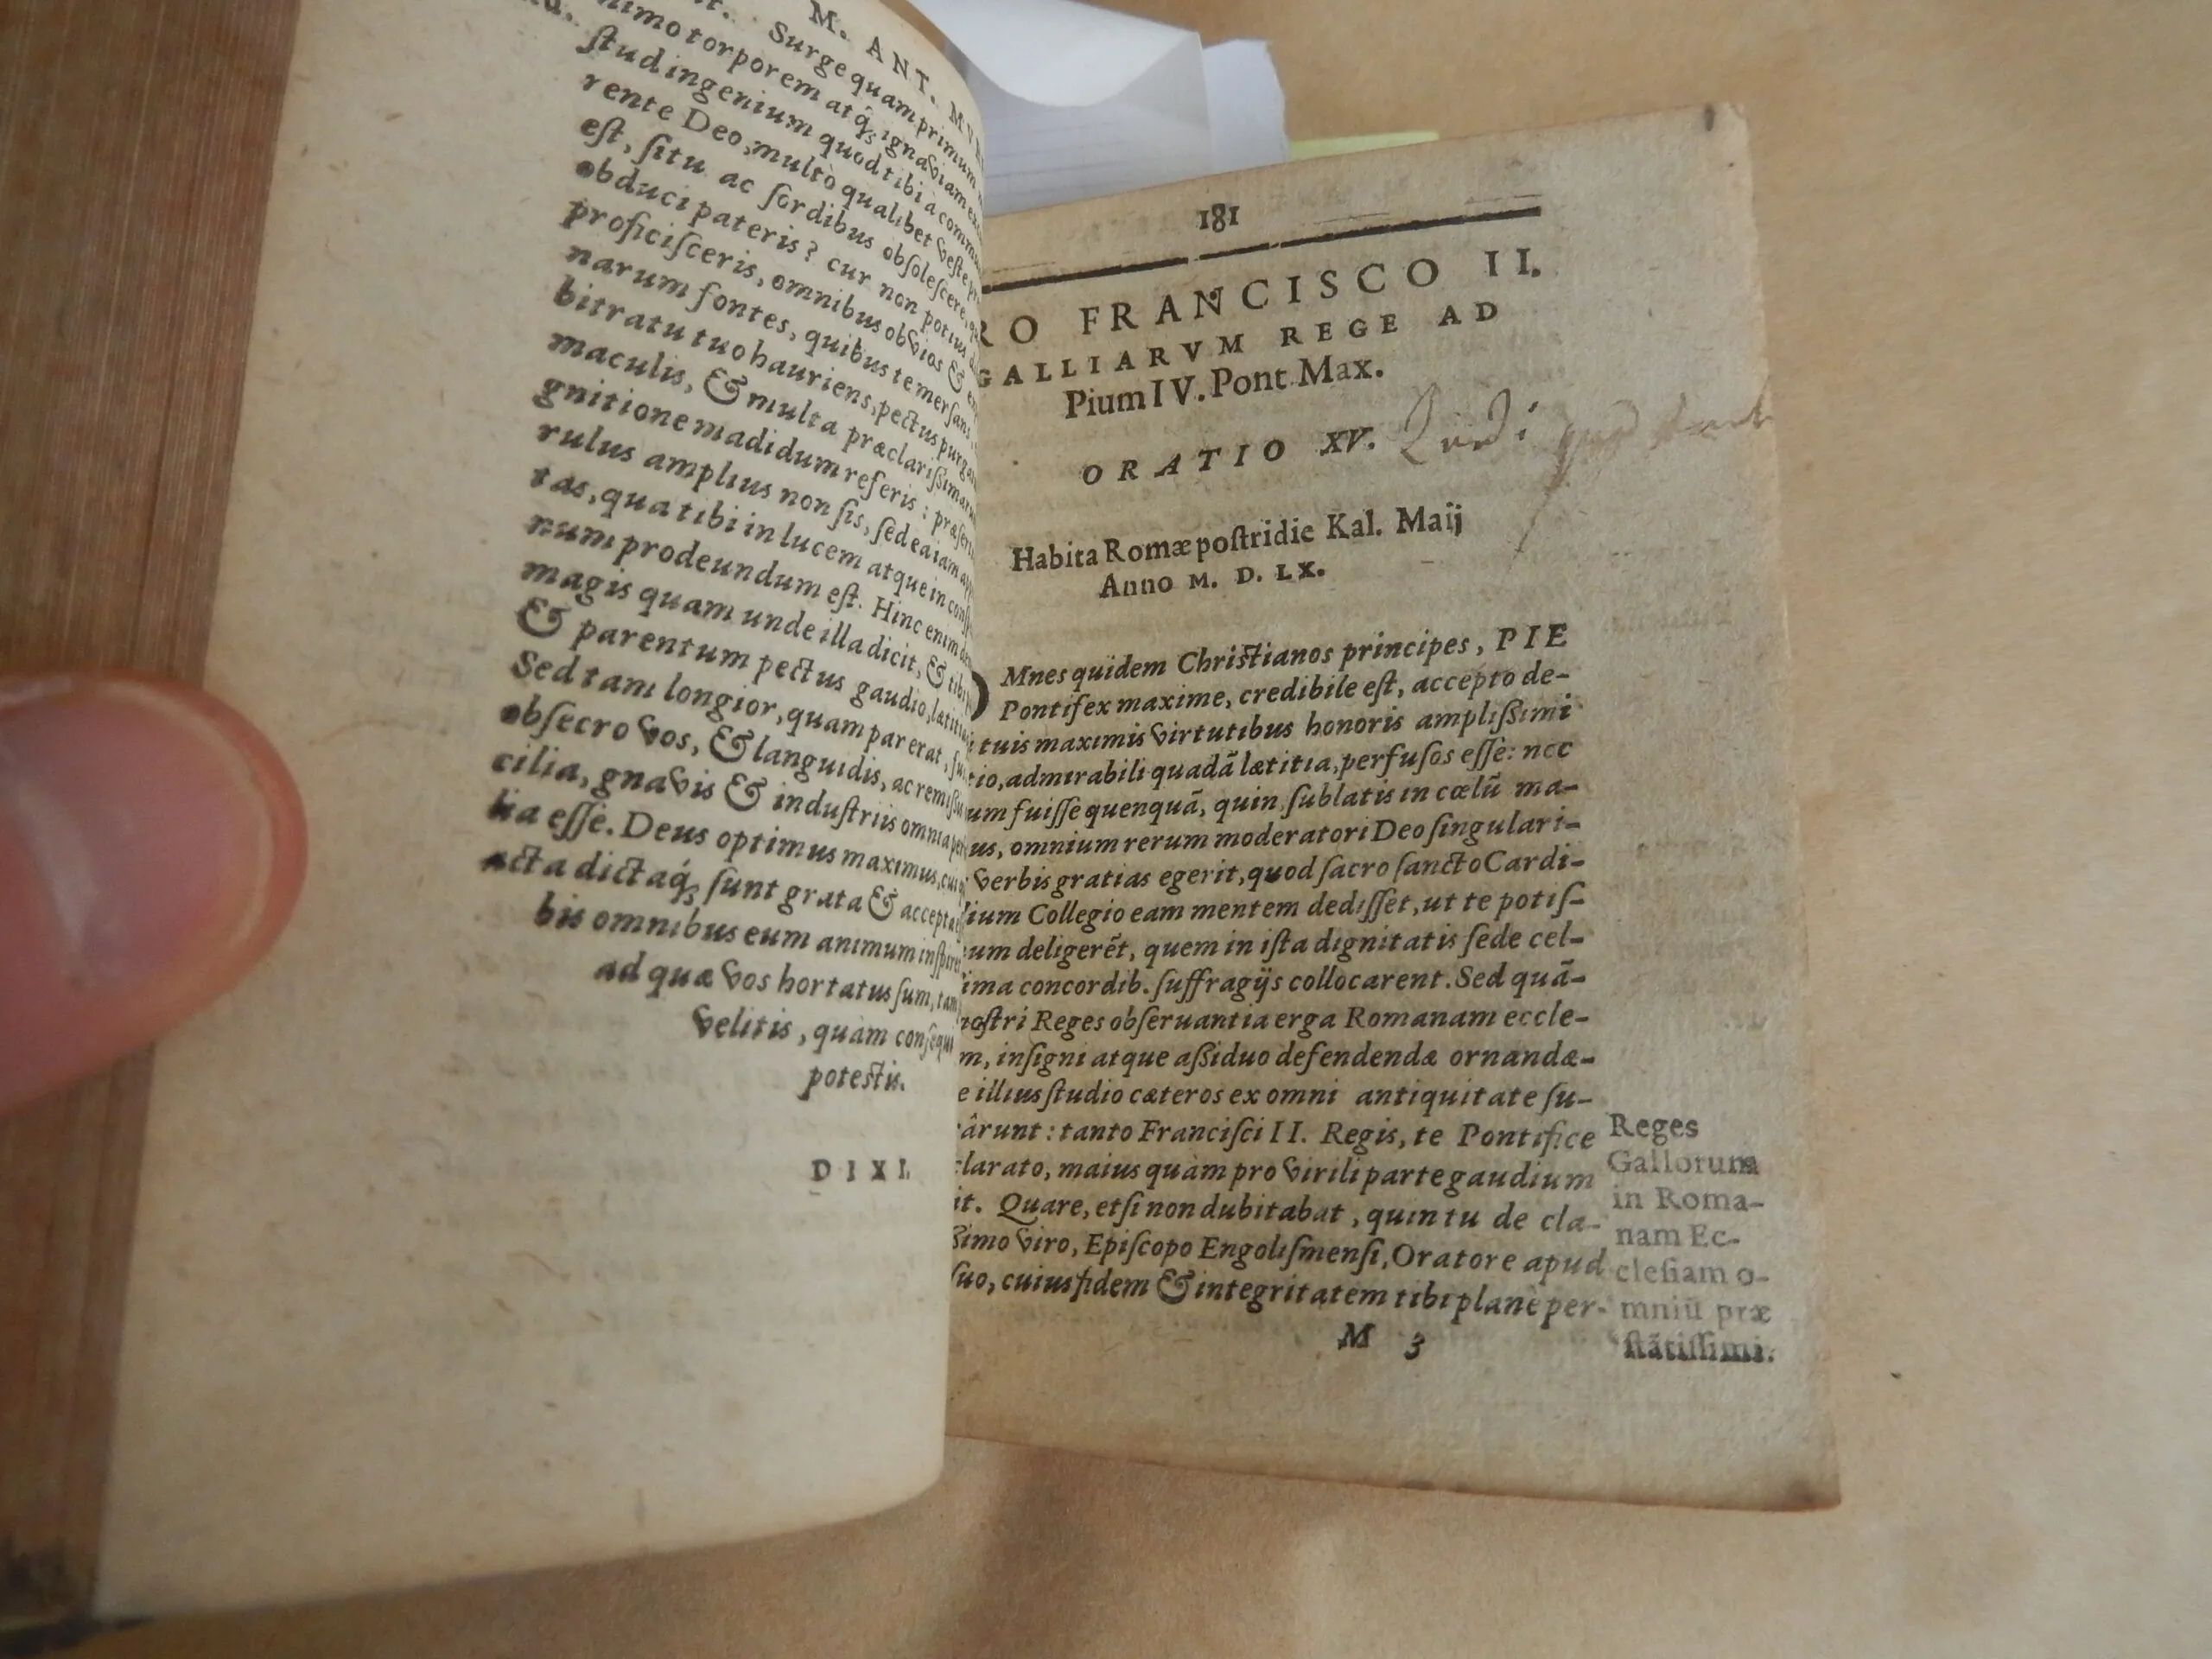 M. ANT. MV
Surge quam primum
nimo torporem atq́; ignaviam
stud ingenium quod tibi à comm
rente Deo, multò qualibet veste
est, situ ac sordibus obsolescere,
obduci pateris? cur non potius
proficisceris, omnibus obvios &
narum fontes, quibus te mersans,
bitratu tuo hauriens, pectus purga
maculis, & multa præclarißimaru
gnitione madidum referis: præser
rulus amplius non sis, sed ea iam
tas, qua tibi in lucem atque in con
num prodeundum est. Hinc enim
magis quam unde illa dicit, & tibi
& parentum pectus gaudio, lætiti
Sed tam longior, quam par erat,
obsecro vos, & languidis, ac remis
cilia, gnavis & industriis omnia
lia esse. Deus optimus maximus,
acta dictaq́; sunt grata & accepta
bis omnibus eum animum inspire
ad quæ vos hortatus sum, tam
velitis, quàm consequi
potestis.
DIXI.
181
RO FRANCISCO II.
GALLIARVM REGE AD
Pium IV. Pont. Max.
ORATIO XV.
Habita Romæ postridie Kal. Maij
Anno M. D. LX.
OMnes quidem Christianos principes, PIE
Pontifex maxime, credibile est, accepto de-
tuis maximis virtutibus honoris amplißimi
tio, admirabili quadã lætitia, perfusos esse: nec
um fuisse quenquã, quin sublatis in cœlũ ma-
us, omnium rerum moderatori Deo singulari-
verbis gratias egerit, quod sacro sancto Cardi-
lium Collegio eam mentem dedisset, ut te potis-
um deligerẽt, quem in ista dignitatis sede cel-
ima concordib. suffragijs collocarent. Sed quã-
nostri Reges obseruantia erga Romanam eccle-
m, insigni atque aßiduo defendendæ ornandæ-
e illius studio cæteros ex omni antiquitate su-
rârunt: tanto Francisci II. Regis, te Pontifice
clarato, maius quàm pro virili parte gaudium
it. Quare, etsi non dubitabat, quin tu de cla-
ßimo viro, Episcopo Engolismensi, Oratore apud
suo, cuius fidem & integritatem tibi planè per-
M 3
Reges
Gallorum
in Roma-
nam Ec-
clesiam o-
mniũ præ
stãtissimi.